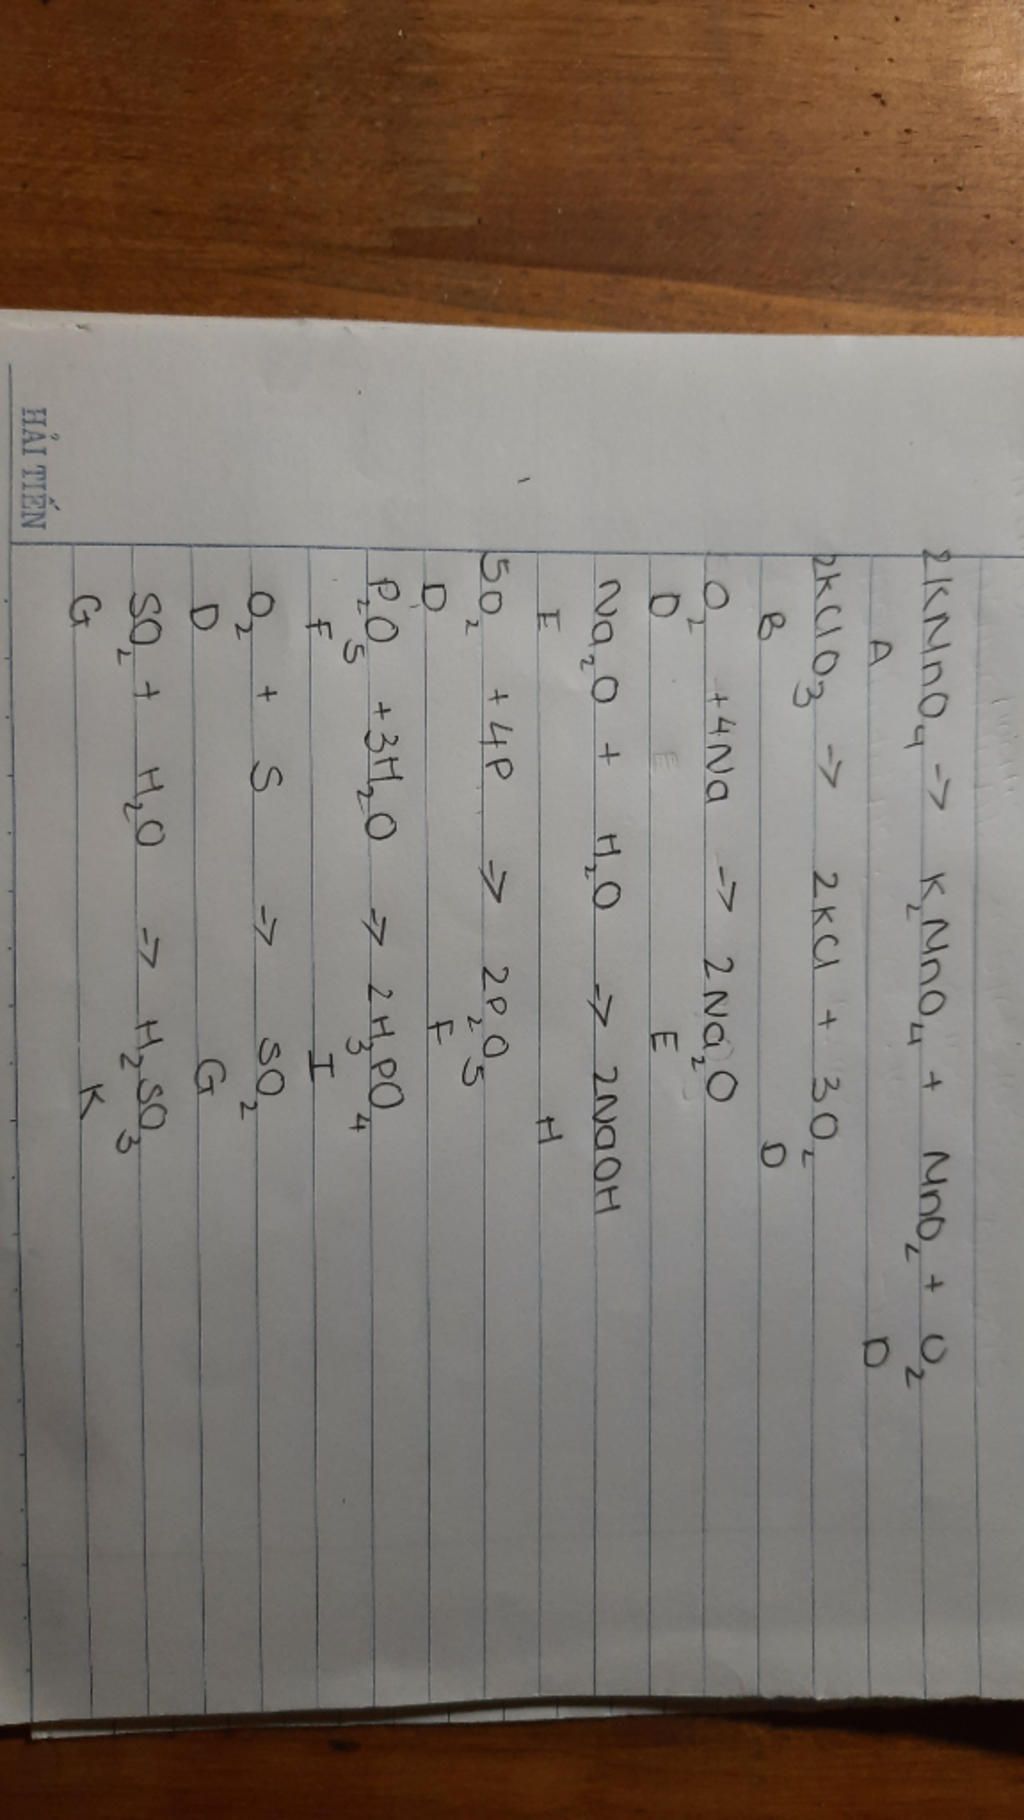 2KMnO₄ → K₂MnO₄ + MnO₂ + O₂
A D
2KClO₃ → 2KCl + 3O₂
B D
O₂ + 4Na → 2Na₂O
D E E
Na₂O + H₂O → 2NaOH
E H
5O₂ + 4P → 2P₂O₅
D F
P₂O₅ + 3H₂O → 2H₃PO₄
F I
O₂ + S → SO₂
D G
SO₂ + H₂O → H₂SO₃
G K
HẢI TIẾN